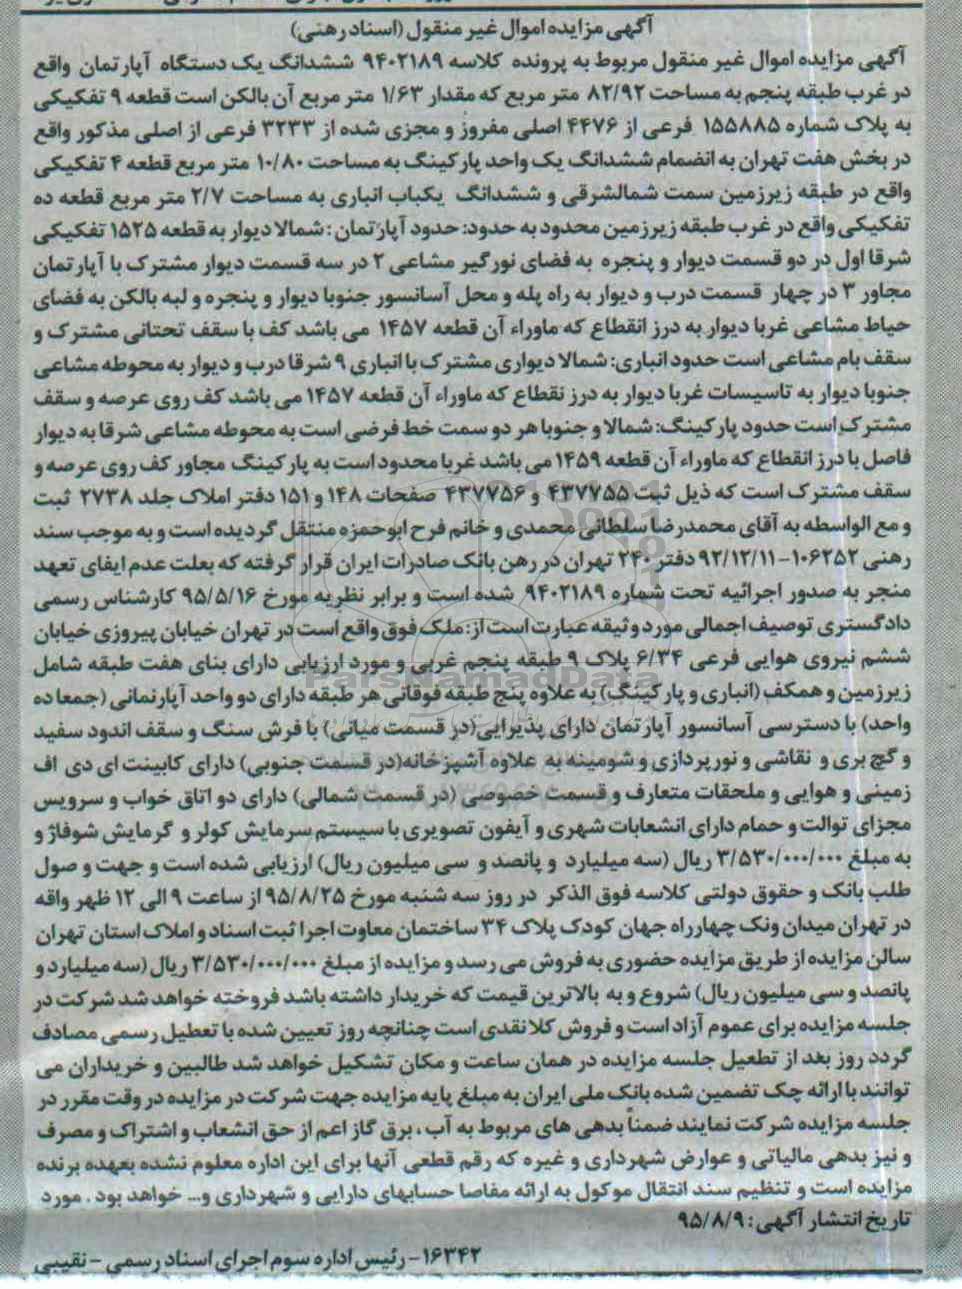 آگهی مزایده اموال غیر منقول (اسناد رهنی)
آگهی مزایده اموال غیر منقول مربوط به پرونده کلاسه ۹۴۰۲۱۸۹ ششدانگ یک دستگاه آپارتمان واقع
در غرب طبقه پنجم به مساحت ۸۲/۹۲ متر مربع که مقدار ۱/۶۳ متر مربع آن بالکن است قطعه ۹ تفکیکی
به پلاک شماره ۱۵۵۸۸۵ فرعی از ۴۴۷۶ اصلی مفروز و مجزی شده از ۳۲۳۳ فرعی از اصلی مذکور واقع
در بخش هفت تهران به انضمام ششدانگ یک واحد پارکینگ به مساحت ۱۰/۸۰ متر مربع قطعه ۴ تفکیکی
واقع در طبقه زیرزمین سمت شمالشرقی و ششدانگ یکباب انباری به مساحت ۲/۷ متر مربع قطعه ده
تفکیکی واقع در غرب طبقه زیرزمین محدود به حدود: حدود آپارتمان : شمالا دیوار به قطعه ۱۵۲۵ تفکیکی
شرقا اول در دو قسمت دیوار و پنجره به فضای نورگیر مشاعی ۲ در سه قسمت دیوار مشترک با آپارتمان
مجاور ۳ در چهار قسمت درب و دیوار به راه پله و محل آسانسور جنوبا دیوار و پنجره و لبه بالکن به فضای
حیاط مشاعی غربا دیوار به درز انقطاع که ماوراء آن قطعه ۱۴۵۷ می باشد کف با سقف تحتانی مشترک و
سقف بام مشاعی است حدود انباری: شمالا دیواری مشترک با انباری ۹ شرقا درب و دیوار به محوطه مشاعی
جنوبا دیوار به تاسیسات غربا دیوار به درز نقطاع که ماوراء آن قطعه ۱۴۵۷ می باشد کف روی عرصه و سقف
مشترک است حدود پارکینگ: شمالا و جنوبا هر دو سمت خط فرضی است به محوطه مشاعی شرقا به دیوار
فاصل با درز انقطاع که ماوراء آن قطعه ۱۴۵۹ می باشد غربا محدود است به پارکینگ مجاور کف روی عرصه و
سقف مشترک است که ذیل ثبت ۴۳۷۷۵۵ و ۴۳۷۷۵۶ صفحات ۱۴۸ و ۱۵۱ دفتر املاک جلد ۲۷۳۸ ثبت
و مع الواسطه به آقای محمدرضا سلطانی محمدی و خانم فرح ابوحمزه منتقل گردیده است و به موجب سند
رهنی ۱۰۶۲۵۲-۹۲/۱۲/۱۱ دفتر ۲۴۰ تهران در رهن بانک صادرات ایران قرار گرفته که بعلت عدم ایفای تعهد
منجر به صدور اجرائیه تحت شماره ۹۴۰۲۱۸۹ شده است و برابر نظریه مورخ ۹۵/۵/۱۶ کارشناس رسمی
دادگستری توصیف اجمالی مورد وثیقه عبارت است از: ملک فوق واقع است در تهران خیابان پیروزی خیابان
ششم نیروی هوایی فرعی ۶/۳۴ پلاک ۹ طبقه پنجم غربی و مورد ارزیابی دارای بنای هفت طبقه شامل
زیرزمین و همکف (انباری و پارکینگ) به علاوه پنج طبقه فوقانی هر طبقه دارای دو واحد آپارتمانی (جمعا ده
واحد) با دسترسی آسانسور آپارتمان دارای پذیرایی(در قسمت میانی) با فرش سنگ و سقف اندود سفید
و گچ بری و نقاشی و نورپردازی و شومینه به علاوه آشپزخانه(در قسمت جنوبی) دارای کابینت ای دی اف
زمینی و هوایی و ملحقات متعارف و قسمت خصوصی (در قسمت شمالی) دارای دو اتاق خواب و سرویس
مجزای توالت و حمام دارای انشعابات شهری و آیفون تصویری با سیستم سرمایش کولر و گرمایش شوفاژ و
به مبلغ ۳/۵۳۰/۰۰۰/۰۰۰ ریال (سه میلیارد و پانصد و سی میلیون ریال) ارزیابی شده است و جهت و صول
طلب بانک و حقوق دولتی کلاسه فوق الذکر در روز سه شنبه مورخ ۹۵/۸/۲۵ از ساعت ۹ الی ۱۲ ظهر واقه
در تهران میدان ونک چهارراه جهان کودک پلاک ۳۴ ساختمان معاوت اجرا ثبت اسناد و املاک استان تهران
سالن مزایده از طریق مزایده حضوری به فروش می رسد و مزایده از مبلغ ۳/۵۳۰/۰۰۰/۰۰۰ ریال (سه میلیارد و
پانصد و سی میلیون ریال) شروع و به بالاترین قیمت که خریدار داشته باشد فروخته خواهد شد شرکت در
جلسه مزایده برای عموم آزاد است و فروش کلا نقدی است چنانچه روز تعیین شده با تعطیل رسمی مصادف
گردد روز بعد از تطعیل جلسه مزایده در همان ساعت و مکان تشکیل خواهد شد طالبین و خریداران می
توانند با ارائه چک تضمین شده بانک ملی ایران به مبلغ پایه مزایده جهت شرکت در مزایده در وقت مقرر در
جلسه مزایده شرکت نمایند ضمناً بدهی های مربوط به آب ، برق گاز اعم از حق انشعاب و اشتراک و مصرف
و نیز بدهی مالیاتی و عوارض شهرداری و غیره که رقم قطعی آنها برای این اداره معلوم نشده بعهده برنده
مزایده است و تنظیم سند انتقال موکول به ارائه مفاصا حسابهای دارایی و شهرداری و... خواهد بود . مورد
تاریخ انتشار آگهی: ۹۵/۸/۹
۱۶۳۴۲- رئیس اداره سوم اجرای اسناد رسمی - نقیبی
ParsNamadData